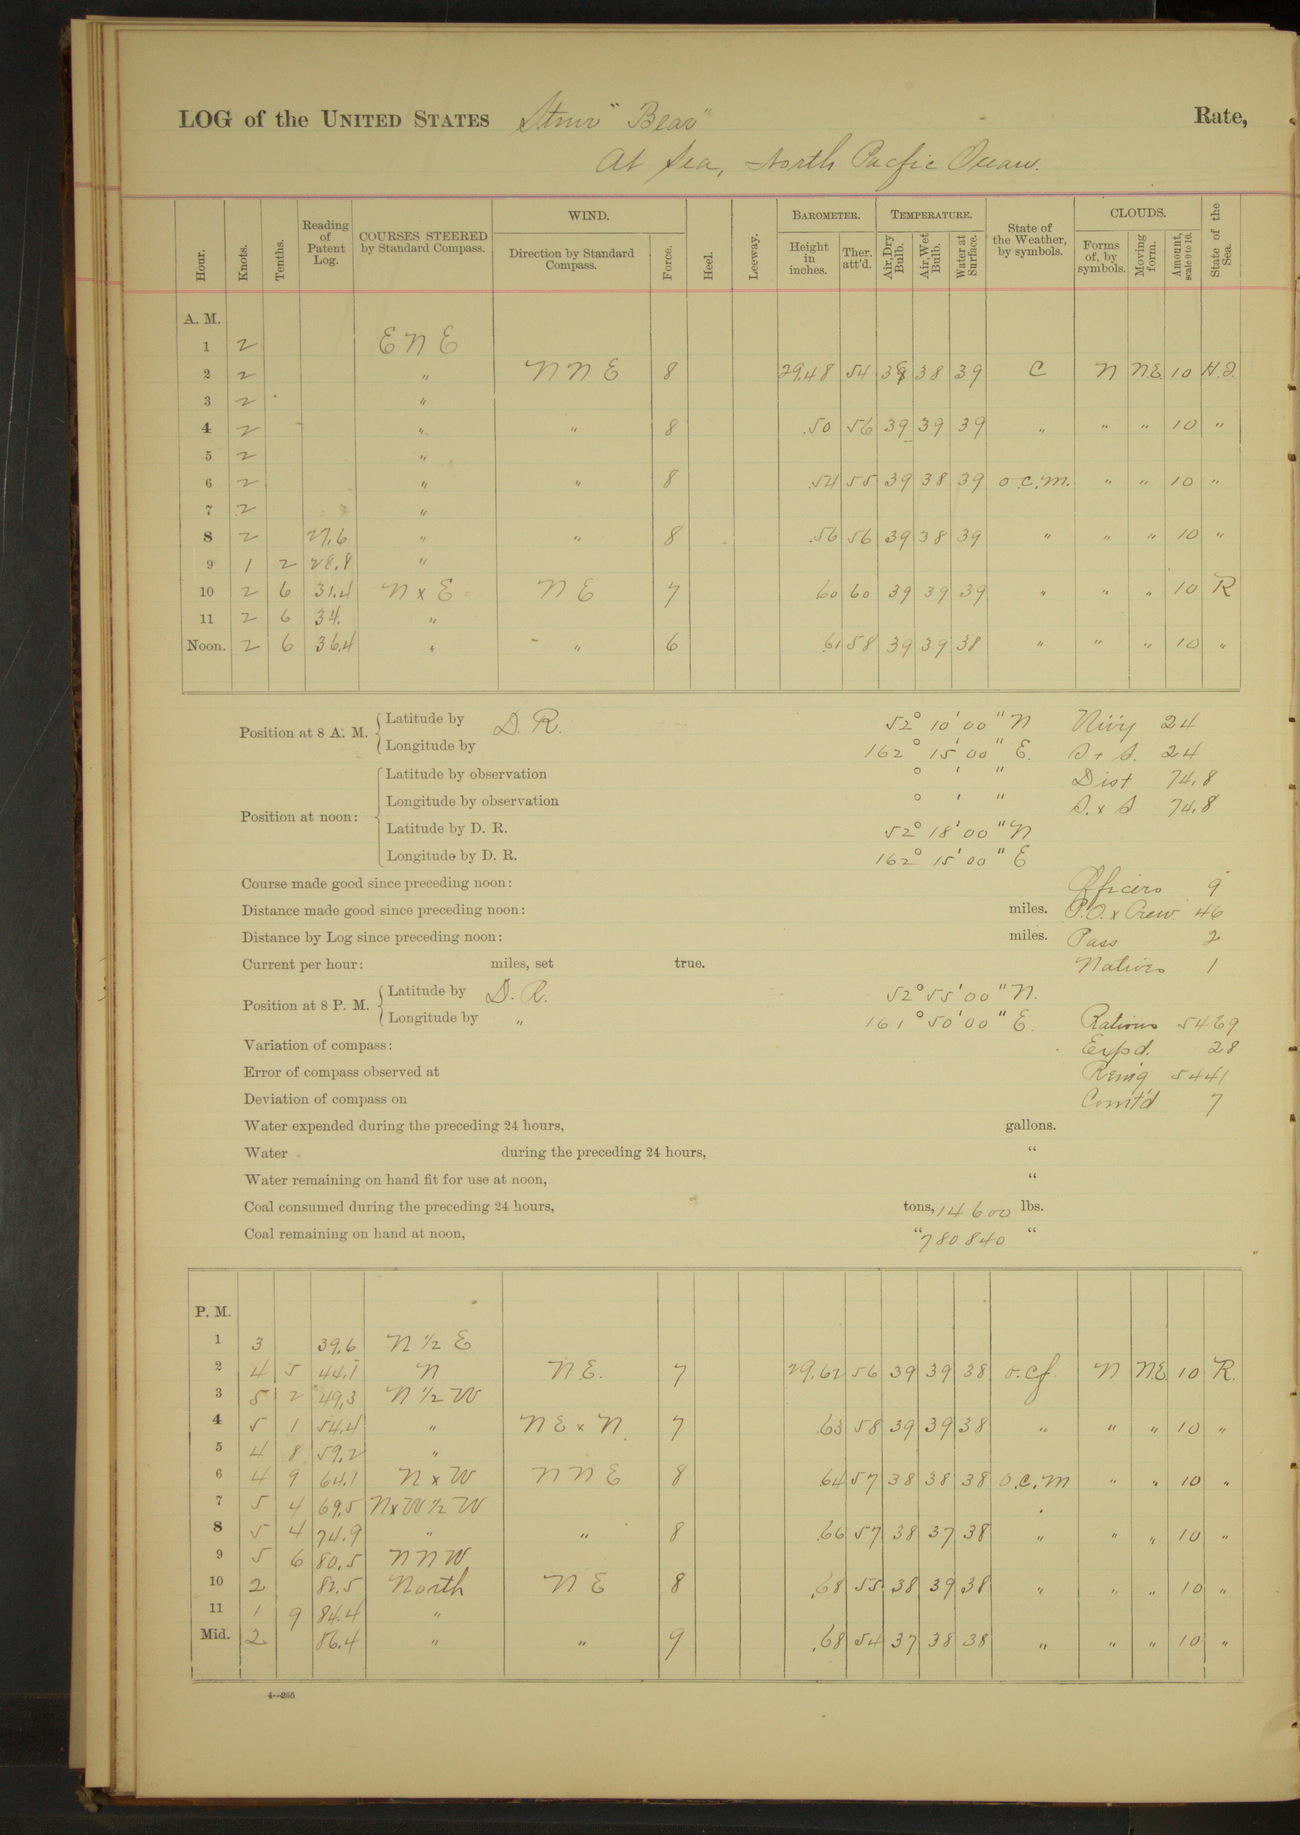 LOG of the UNITED STATES Stmr "Bear" Rate,
At Sea, North Pacific Ocean.
Hour. Knots. Tenths. Reading of Patent Log. COURSES STEERED by Standard Compass. WIND. Direction by Standard Compass. Force. Heel. Leeway. BAROMETER. Height in inches. Ther. att'd. TEMPERATURE. Air, Dry Bulb. Air, Wet Bulb. Water at Surface. State of the Weather, by symbols. CLOUDS. Forms of, by symbols. Moving form. Amount, scale 0 to 10. State of the Sea.
A. M.
1 2 E N E
2 2 " N N E 8 29.48 54 38 38 39 C N N.E. 10
3 2 "
4 2 " " 8 .50 56 39 39 39 " " " 10 "
5 2 "
6 2 " " 8 .54 55 39 38 39 o.c.m. " " 10 "
7 2 "
8 2 27.6 " " 8 .56 56 39 38 39 " " " 10 "
9 1 2 28.8 "
10 2 6 31.4 N x E N E 7 60 60 39 39 39 " " " 10 R
11 2 6 34. "
Noon. 2 6 36.4 " " 6 .61 58 39 39 38 " " " 10 "
Position at 8 A. M. Latitude by D. R. 52° 10' 00" N
Longitude by 162° 15' 00" E. 24
24
Position at noon: Latitude by observation ° ' " Dist 74.8
Longitude by observation ° ' " 74.8
Latitude by D. R. 52° 18' 00" N
Longitude by D. R. 162° 15' 00" E
Course made good since preceding noon: Officers 9
Distance made good since preceding noon: miles. P.O. x Crew. 46
Distance by Log since preceding noon: miles. Pass 2
Current per hour: miles, set true. Natives 1
Position at 8 P. M. Latitude by D. R. 52° 55' 00" N.
Longitude by " 161° 50' 00" E. Rations 5469
Variation of compass: Expd. 28
Error of compass observed at Remg 5441
Deviation of compass on Comt'd 7
Water expended during the preceding 24 hours, gallons.
Water during the preceding 24 hours, "
Water remaining on hand fit for use at noon, "
Coal consumed during the preceding 24 hours, tons, 14600 lbs.
Coal remaining on hand at noon, " 780840 "
P. M.
1 3 39.6 N ½ E
2 4 5 44.1 N N.E. 7 29.62 56 39 39 38 o.c.f. N N.E. 10 R.
3 5 2 49.3 N ½ W
4 5 1 54.4 " N E x N. 7 .63 58 39 39 38 " " " 10 "
5 4 8 59.2 "
6 4 9 64.1 N x W N N E 8 .64 57 38 38 38 o.c.m " " 10 "
7 5 4 69.5 N x W ½ W
8 5 4 74.9 " " 8 .66 57 38 37 38 " " " 10 "
9 5 6 80.5 N N W
10 2 82.5 North N E 8 .68 55 38 39 38 " " " 10 "
11 1 9 84.4 "
Mid. 2 86.4 " " 9 .68 54 37 38 38 " " " 10 "